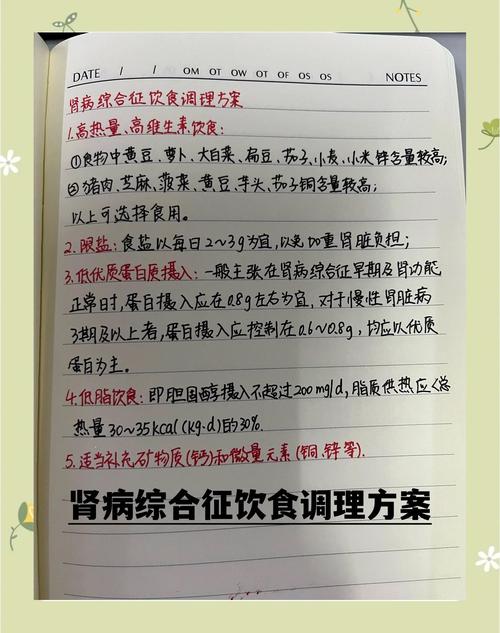 DATE / / OM OT OW OT OF OS OS NOTES
肾病综合征饮食调理方案
1.高热量、高维生素饮食:
①食物中黄豆、萝卜、大白菜、扁豆、茄子、小麦、小米锌含量较高;
②猪肉、芝麻、菠菜、黄豆、芋头、茄子铜含量较高;
以上可选择食用。
2.限盐:食盐以每日2~3g为宜,以免加重肾脏负担;
3.低优质蛋白质摄入:一般主张在肾病综合征早期及肾功能
正常时,蛋白摄入应在0.8g左右为宜,对于慢性肾脏病
3期及以上者,蛋白摄入应控制在0.6~0.8g,均应以优质
蛋白为主。
4.低脂饮食:即胆固醇摄入不超过200mg/d,脂质供热应<总
热量30~35kcal(kg·d)的30%.
5.适当补充矿物质(钙)和微量元素(铜.锌等).
肾病综合征饮食调理方案